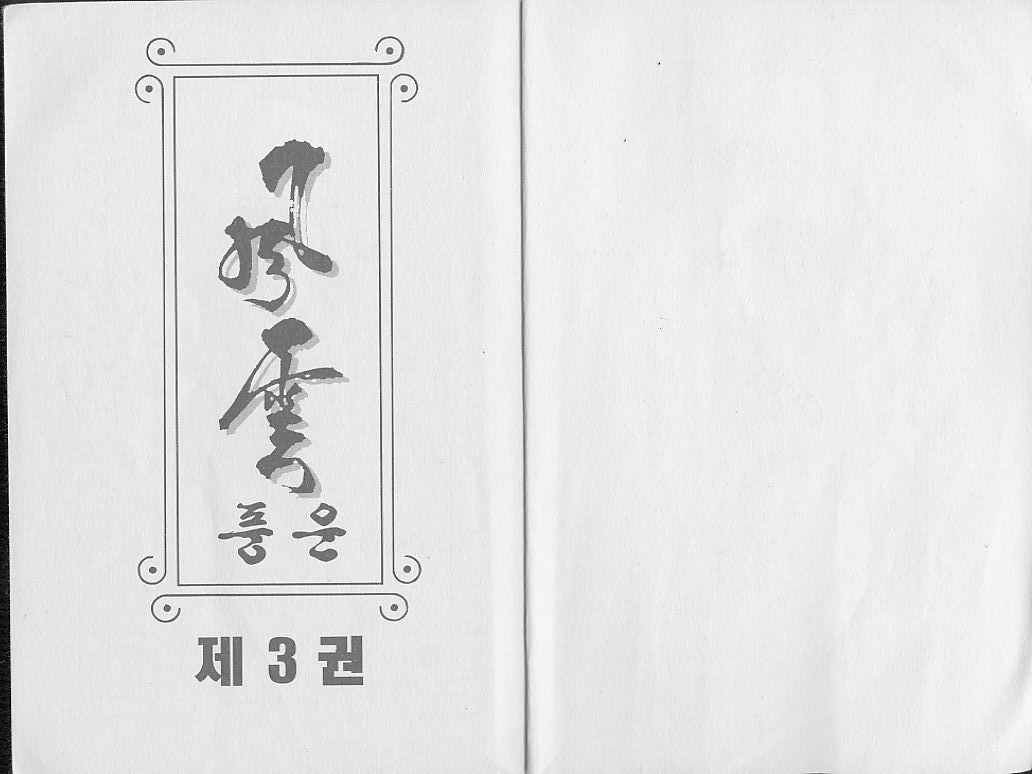 風
雲
풍 운
제 3 권